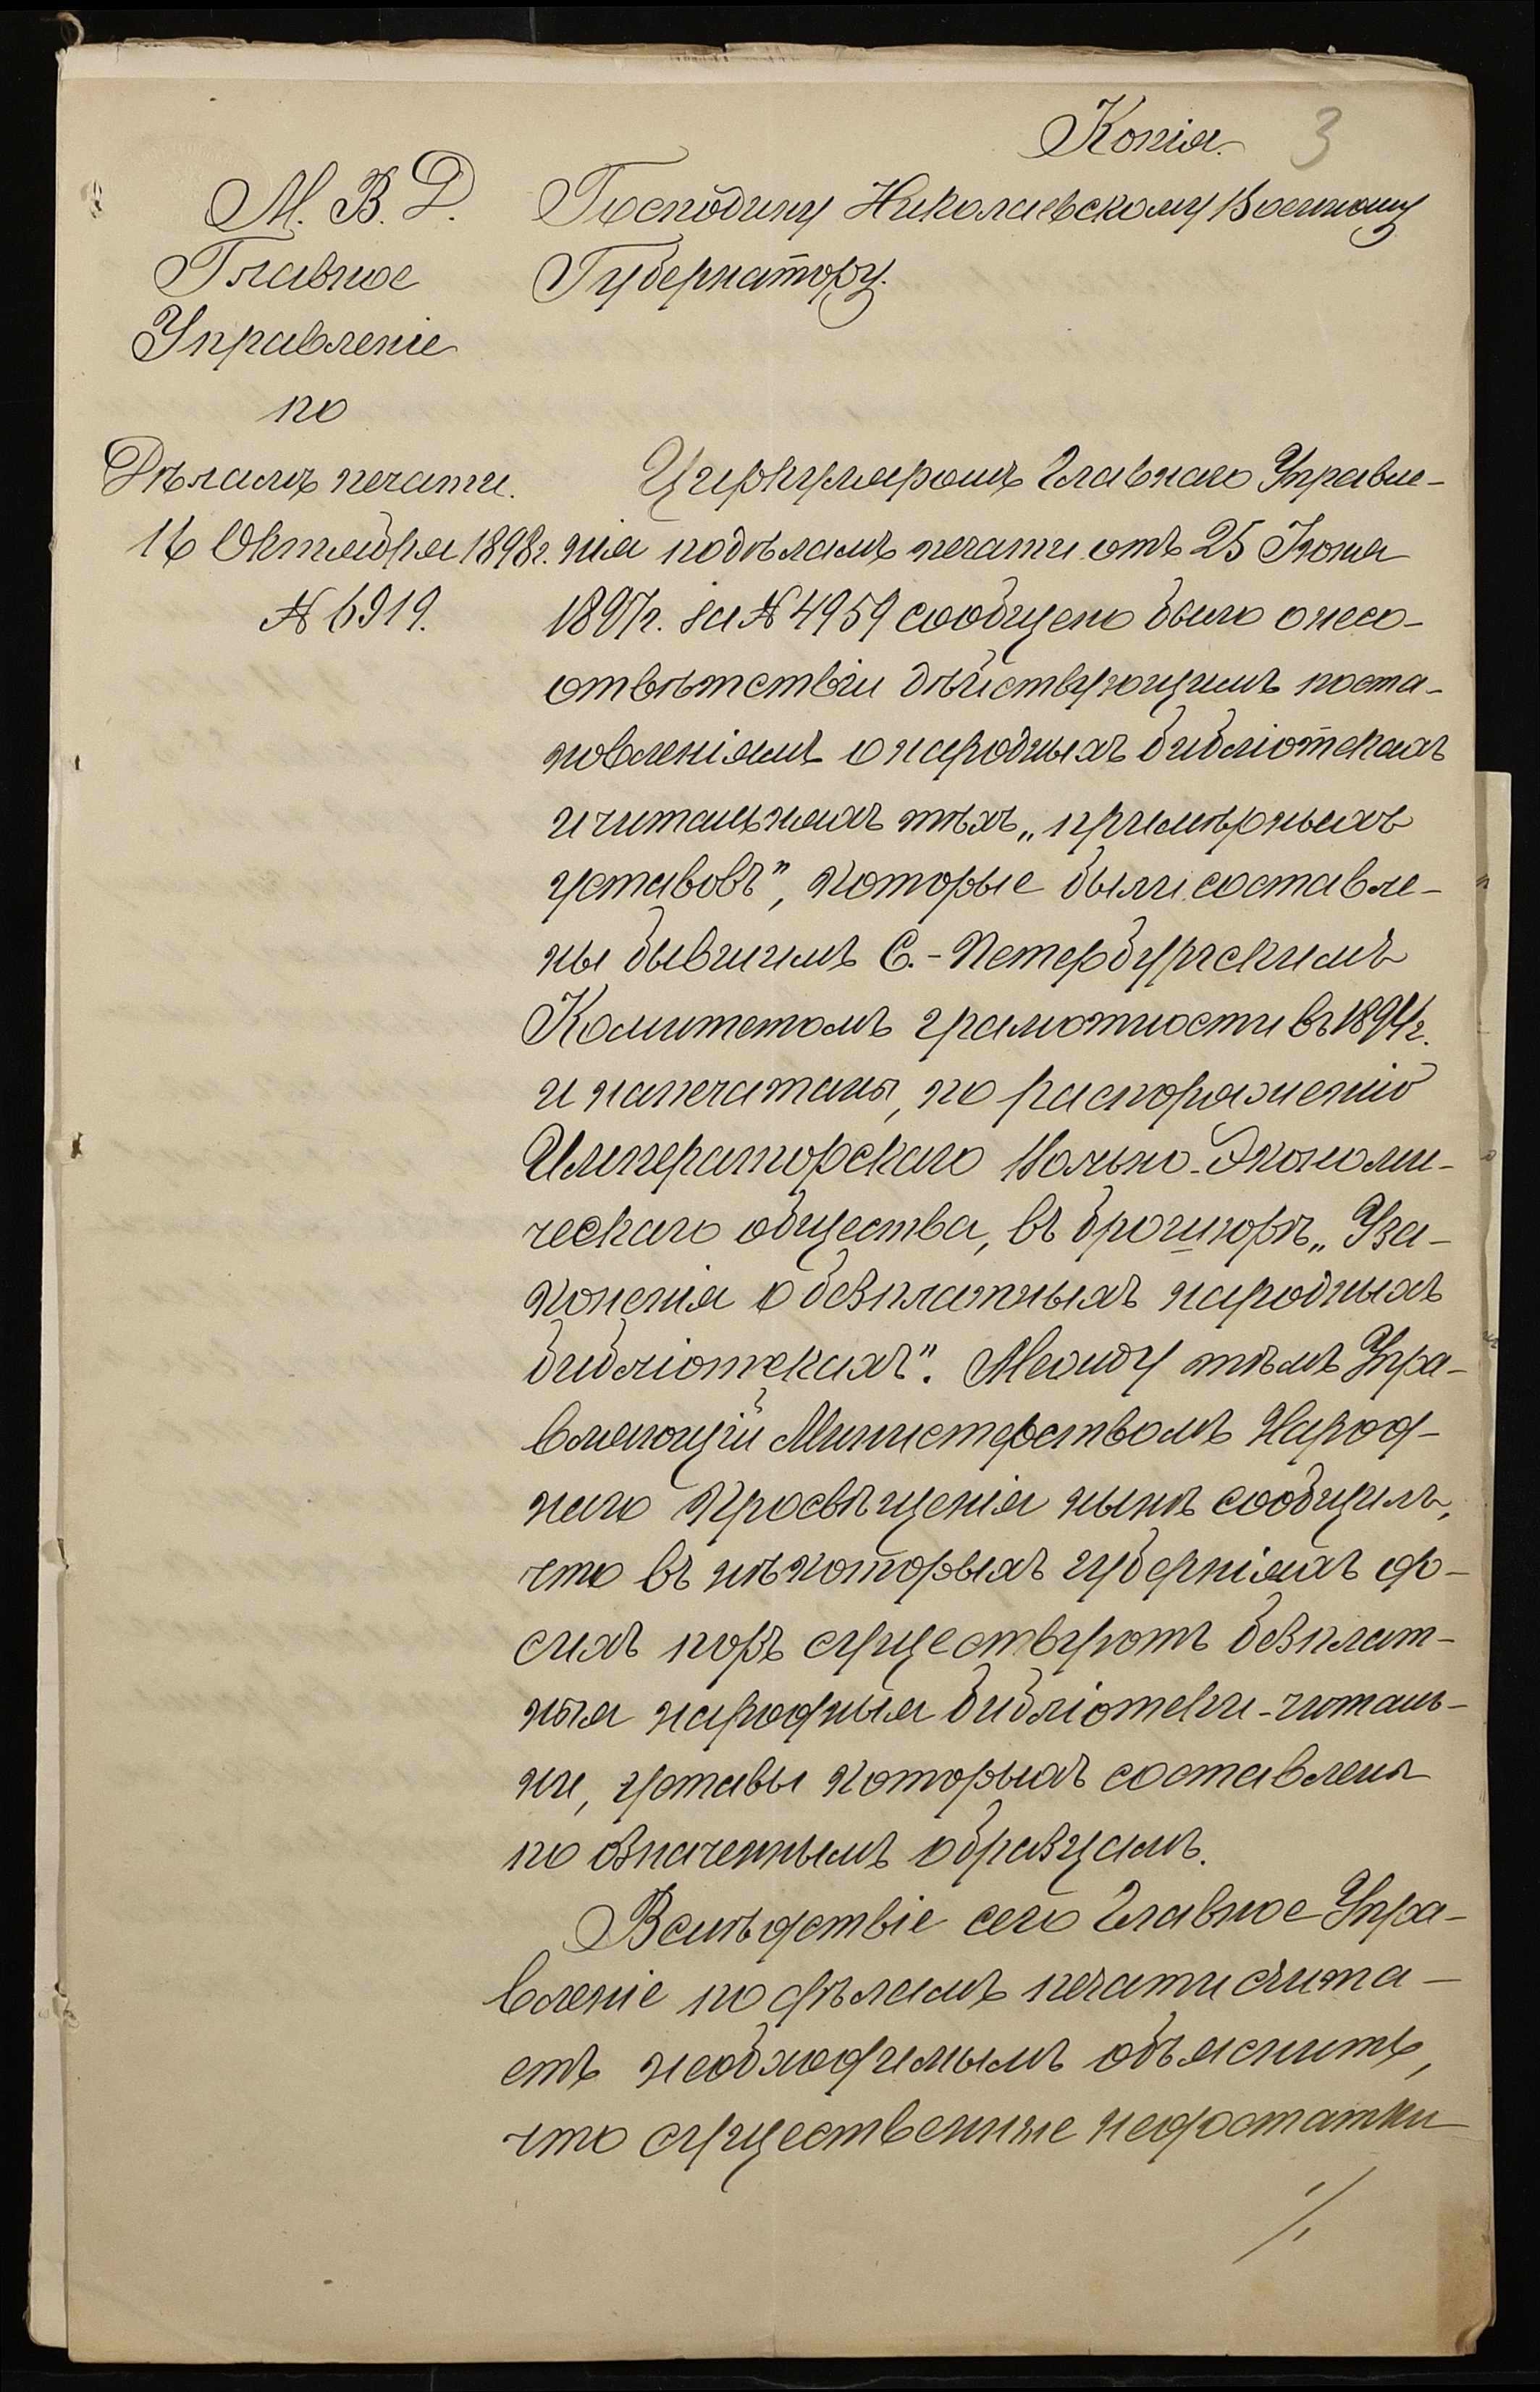 Копія.
3
М. В. Д.
Главное
Управленіе
по
Дѣламъ печати.
16 Октября 1898г.
№ 6919.
Господину Николаевскому Военному
Губернатору.
Циркуляромъ Главнаго Управле-
нія по дѣламъ печати отъ 25 Іюня
1897г. за № 4959 сообщено было о несо-
отвѣтствіи дѣйствующимъ поста-
новленіямъ о народныхъ библіотекахъ
и читальняхъ тѣхъ „примѣрныхъ
уставовъ", которые были составле-
ны бывшимъ С.-Петербургскимъ
Комитетомъ грамотности въ 1894г.
и напечатаны, по распоряженію
Императорскаго Вольно-Экономи-
ческаго общества, въ брошюрѣ „Уза-
коненія о безплатныхъ народныхъ
библіотекахъ". Между тѣмъ Упра-
вляющій Министерствомъ Народ-
наго Просвѣщенія нынѣ сообщилъ,
что въ нѣкоторыхъ губерніяхъ до-
сихъ поръ существуютъ безплат-
ныя народныя библіотеки-читаль-
ни, уставы которыхъ составлены
по означеннымъ образцамъ.
Вслѣдствіе сего Главное Упра-
вленіе по дѣламъ печати счита-
етъ необходимымъ объяснить,
что существенные недостатки
./.